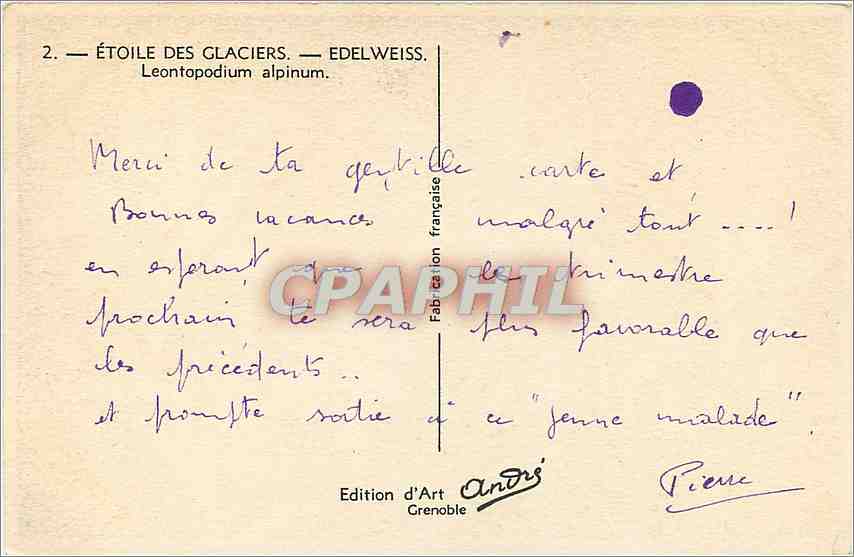 2. — ÉTOILE DES GLACIERS. — EDELWEISS.
Leontopodium alpinum.
Merci de ta gentille carte et
Bonnes vacances malgré tout ....!
en esperant que le trimestre
prochain te sera plus favorable que
les précédents..
et prompte sortie à ce "jeune malade".
Pierre
Fabrication française
CPAPHIL
Edition d'Art André
Grenoble